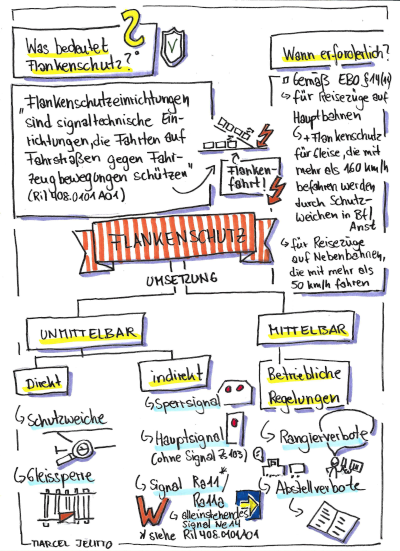 Was bedeutet
Flankenschutz?
"Flankenschutzeinrichtungen
sind signaltechnische Ein-
richtungen, die Fahrten auf
Fahrstraßen gegen Fahr-
zeugbewegungen schützen"
(Ril 408.0101A01)
Flanken-
fahrt!
Wann erforderlich?
Gemäß EBO § 14(11)
für Reisezüge auf
Hauptbahnen
+ Flankenschutz
für Gleise, die mit
mehr als 160 km/h
befahren werden
durch Schutz-
weichen in Bf/
Anst
für Reisezüge
auf Nebenbahnen,
die mit mehr als
50 km/h fahren
FLANKENSCHUTZ
UMSETZUNG
UNMITTELBAR
MITTELBAR
Direkt
Schutzweiche
Gleissperre
indirekt
Sperrsignal
Hauptsignal
(ohne Signal Zs 103)
Signal Ra11*
Ra11a
W
alleinstehendes
Signal Ne14
* siehe Ril 408.0101A01
Betriebliche
Regelungen
Rangierverbote
Abstellverbote
MARCEL JELITTO